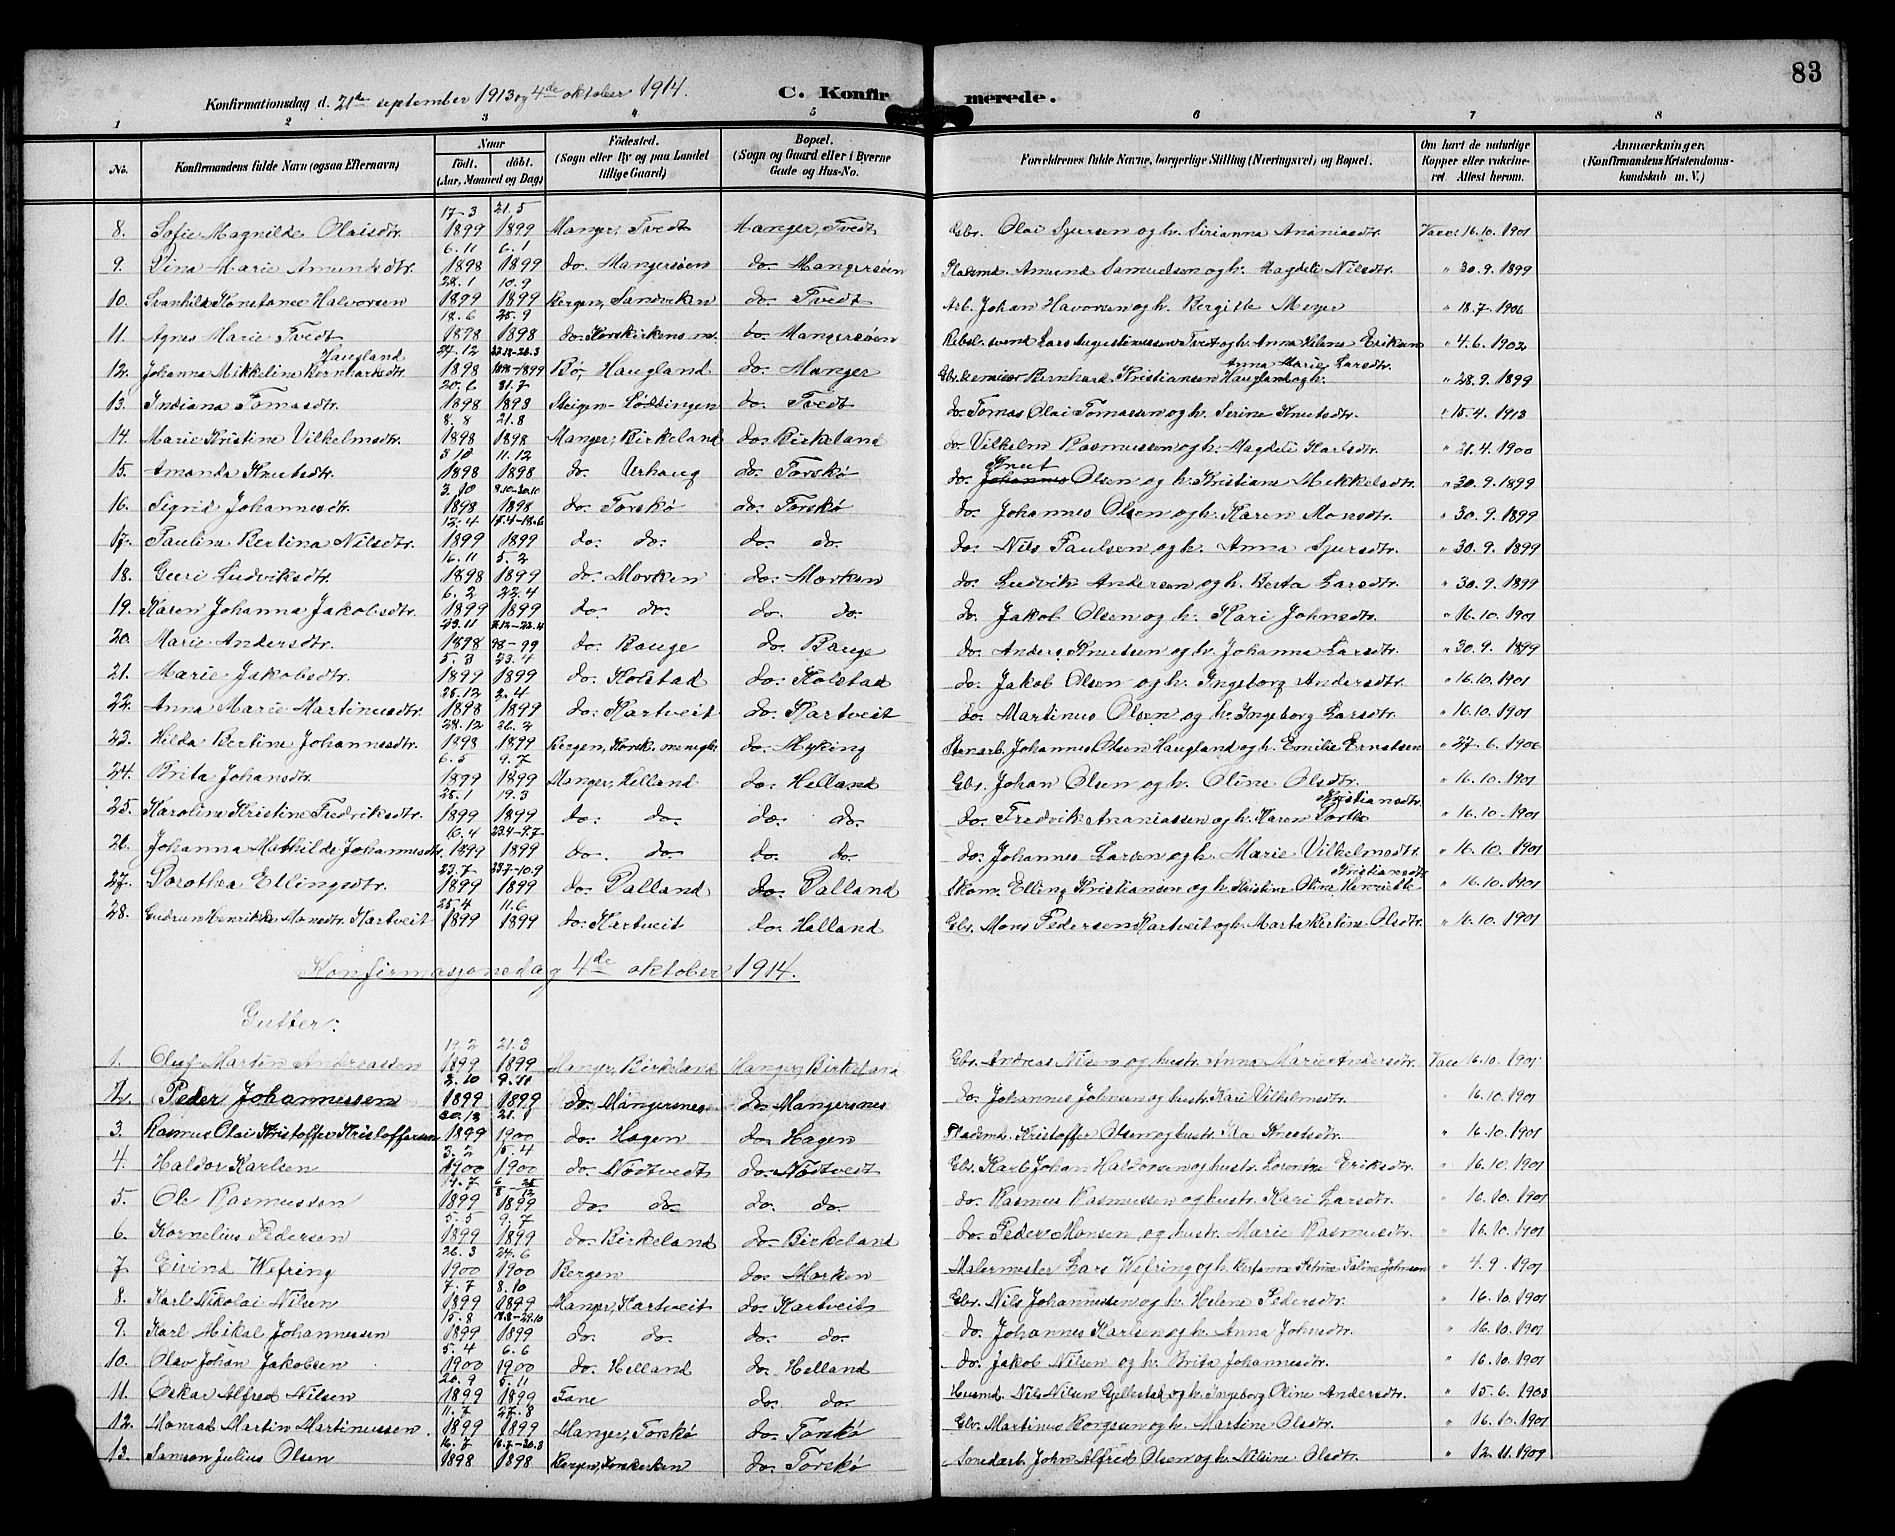 83
Konfirmationsdag d. 21de september 1913 og 4de oktober 1914. C. Konfirmerede.
1 2 3 4 5 6 7 8
No. Konfirmandens fulde Navn (ogsaa Efternavn) Naar født. døbt. (Aar, Maaned og Dag) Fødested. (Sogn eller By og paa Landet tillige Gaard) Bopæl. (Sogn og Gaard eller i Byerne Gade og Hus-No. Forældrenes fulde Navne, borgerlige Stilling (Næringsvei) og Bopæl. Om havt de naturlige Kopper eller vaccineret Attest herom. Anmærkninger (Konfirmandens Kristendomskundskab m. V.)
8. Sofie Magnilde Olaisdtr. 17-3 1899 21.5 1899 Manger, Tvedt Manger, Tvedt Gbr. Olai Sjursen og h. Sirianna Ananiasdtr. Vacc. 16.10.1901
9. Lina Marie Amundsdtr. 6.11 1898 6.1 1899 do. Mangersøen do. Mangersøen Pladsmd. Amund Samuelsen og h. Magdeli Nilsdtr. " 30.9.1899
10. Svanhild Konstance Halvorsen 28.1 1899 10.9 1899 Bergen, Sandviken do. Tvedt Arb. Johan Havorsen og h. Bergitte Meyer " 18.7.1906
11. Agnes Marie Tvedt 18.6 1898 25.9 1898 do. Korskirkens m. do. Mangersøen Rebsl. svend Lars Augustinussen Tvedt og h. Anna Vilene Eriksen " 4.6.1902
12. Johanna Mikkeline Bernhardsdtr. Haugland 27.12 1898 1898-1899 Bø, Haugland do. Manger Gbr. Bernhard Kristiansen Haugland og h. Anna Marie Larsdtr. " 28.9.1899
13. Indiana Tomasdtr. 20.6 1898 31.7 1898 Steigen-Lødingen do. Tvedt do. Tomas Olai Tomassen og h. Serine Knutsdtr. " 15.4.1913
14. Marie Kristine Vilhelmsdtr. 8.8 1898 21.8 1898 Manger, Birkeland do. Birkeland do. Vilhelm Rasmussen og h. Magdeli Karlsdtr. " 21.4.1900
15. Amanda Knutsdtr. 3.10 1898 11.12 1898 do. Urhaug do. Torskø do. Johannes Knut Olsen og h. Kristiane Mikkelsdtr. " 30.9.1899
16. Sigrid Johannesdtr. 3.10 1898 9.10-30.10 1898 do. Torskø do. Torskø do. Johannes Olsen og h. Karen Monsdtr. " 30.9.1899
17. Pauline Bertina Nilsdtr. 12.4 1899 17.4-18.6 1899 do. do. do. do. do. Nils Paulsen og h. Anna Sjursdtr. " 30.9.1899
18. Guri Ludviksdtr. 16.11 1898 5.2 1899 do. Morken do. Morken do. Ludvik Andersen og h. Berta Larsdtr. " 30.9.1899
19. Karen Johanna Jakobsdtr. 6.2 1899 22.4 1899 do. do. do. do. do. Jakob Olsen og h. Kari Johnsdtr. " 16.10.1901
20. Marie Andersdtr. 23.11 1898 98-99 do. Bauge do. Bauge do. Anders Knutsen og h. Johanna Larsdtr. " 30.9.1899
21. Marie Jakobsdtr. 5.3 1899 23.4 1899 do. Kolstad do. Kolstad do. Jakob Olsen og h. Ingeborg Andersdtr. " 16.10.1901
22. Anna Marie Martinusdtr. 25.12 1898 2.4 1899 do. Kartveit do. Kartveit do. Martinus Olsen og h. Ingeborg Larsdtr. " 16.10.1901
23. Hilda Bertine Johannesdtr. 28.12 1898 26.2 1899 Bergen, Korsk. menigh. do. Myking Stenarb. Johannes Olsen Haugland og h. Emilie Ernstsen " 27.6.1906
24. Brita Johansdtr. 6.5 1899 9.7 1899 Manger, Helland do. Helland Gbr. Johan Olsen og h. Oline Olsdtr. " 16.10.1901
25. Karoline Kristine Fredriksdtr. 28.1 1899 19.3 1899 do. do. do. do. do. Fredvik Ananiassen og h. Karen Dorthe Kristiansdtr. " 16.10.1901
26. Johanna Mathilde Johannesdtr. 10.4 1899 23.4-9.7 1899 do. do do. do do. Johannes Larsen og h. Marie Vilhelmsdtr. " 16.10.1901
27. Dorothea Ellingsdtr. 23.7 1899 23.7-10.9 1899 do. Palland do. Palland Skom. Elling Kristiansen og h. Kristine Oline Henriette Kristiansdtr. " 16.10.1901
28. Gudrun Henrikke Monsdtr. Kartveit 25.4 1899 11.6 1899 do. Kartveit do. Halland Gbr. Mons Pedersen Kartveit og h. Marta Bertine Olsdtr. " 16.10.1901
Konfirmasjonsdag 4de oktober 1914.
Gutter:
1. Oluf Martin Andreassen 19.2 1899 21.3 1899 Manger, Birkeland Manger, Birkeland Gbr. Andreas Nilsen og hustr. Anna Marie Andersdtr. Vacc 16.10.1901
2. Peder Johannessen 2.10 1899 9.11 1899 do. Mangersnes do. Mangersnes do. Johannes Johnsen og hustr. Kari Vilhelmsdtr. " 16.10.1901
3. Rasmus Olai Kristoffer Kristoffersen 20.12 1899 21.1 1900 do. Hagen do. Hagen Pladsmd. Kristoffer Olsen og hustr. Knutsdtr. " 16.10.1901
4. Haldor Karlsen 3.2 1900 15.4 1900 do. Nødtvedt do. Nødtvedt Gbr. Karl Johan Haldorsen og hustr. Dorothea Eriksdtr. " 16.10.1901
5. Ole Rasmussen 14.7 1899 6/8-25/12 1899 do. do. do. do. do. Rasmus Rasmussen og hustr. Kari Larsdtr. " 16.10.1901
6. Kornelius Pedersen 5.5 1899 9.7 1899 do. Birkeland do. Birkeland do. Peder Monsen og hustr. Marie Rasmusdtr. " 16.10.1901
7. Eivind Wefring 26.3 1900 24.6 1900 Bergen do. Morken Malermester Lars Wefring og h. Petrine Taline Johnson " 4.9.1901
8. Karl Nikolai Nilsen 7.7 1899 8.10 1899 Manger, Kartveit do. Kartveit Gbr. Nils Johannessen og h. Helene Pedersdtr. " 16.10.1901
9. Karl Mikal Johannessen 15.8 1899 18.8-29.10 1899 do. do. do. do. do. Johannes Karlsen og h. Anna Johnsdtr. " 16.10.1901
10. Olav Johan Jakobsen 5.4 1900 6.6 1900 do. Helland do. Helland do. Jakob Nilsen og h. Brita Johannesdtr. " 16.10.1901
11. Oskar Alfred Nilsen 20.9 1899 5.11 1899 Fane do. do. Husmd. Nils Nilsen Gjellestad og h. Ingeborg Oline Andersdtr. " 15.6.1903
12. Monrad Martin Martinussen. 11.7 1899 27.8 1899 Manger, Torskø do. Torskø Gbr. Martinus Borgesen og h. Martine Olsdtr. " 16.10.1901
13. Samson Julius Olsen 16.7 1898 16.7-20.3 1898 Bergen, Korskirken do. Torskø Smedarb. John Alfred Olsen og h. Nilsine Olsdtr. " 12.11.1901